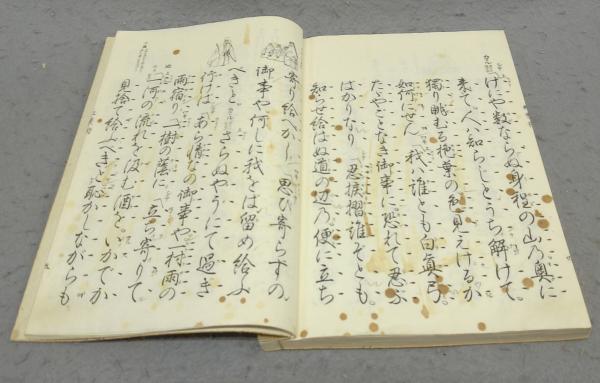 げにや数ならぬ身程の山乃奥に
来て人ハ知らじとうち解けて。
獨り眺むる紅葉の色見えけるか
如何にせん 我ハ誰とも白真弓。
たゞやごとなき御事に恐れて忍ぶ
ばかりなり 忍捩摺誰ぞとも。
知らせ給はぬ道の辺乃。便に立ち
寄り給へかし 思ひ寄らずの
御事や何しに我をは留め給ふ
べきと さらぬやうにて過ぎ
行けば あら情なの御事や 村雨の
雨宿り 一樹の蔭に 立ち寄りて
一河の流れを汲む酒を。いかでか
見捨て給ふべきと 恥かしながらも。